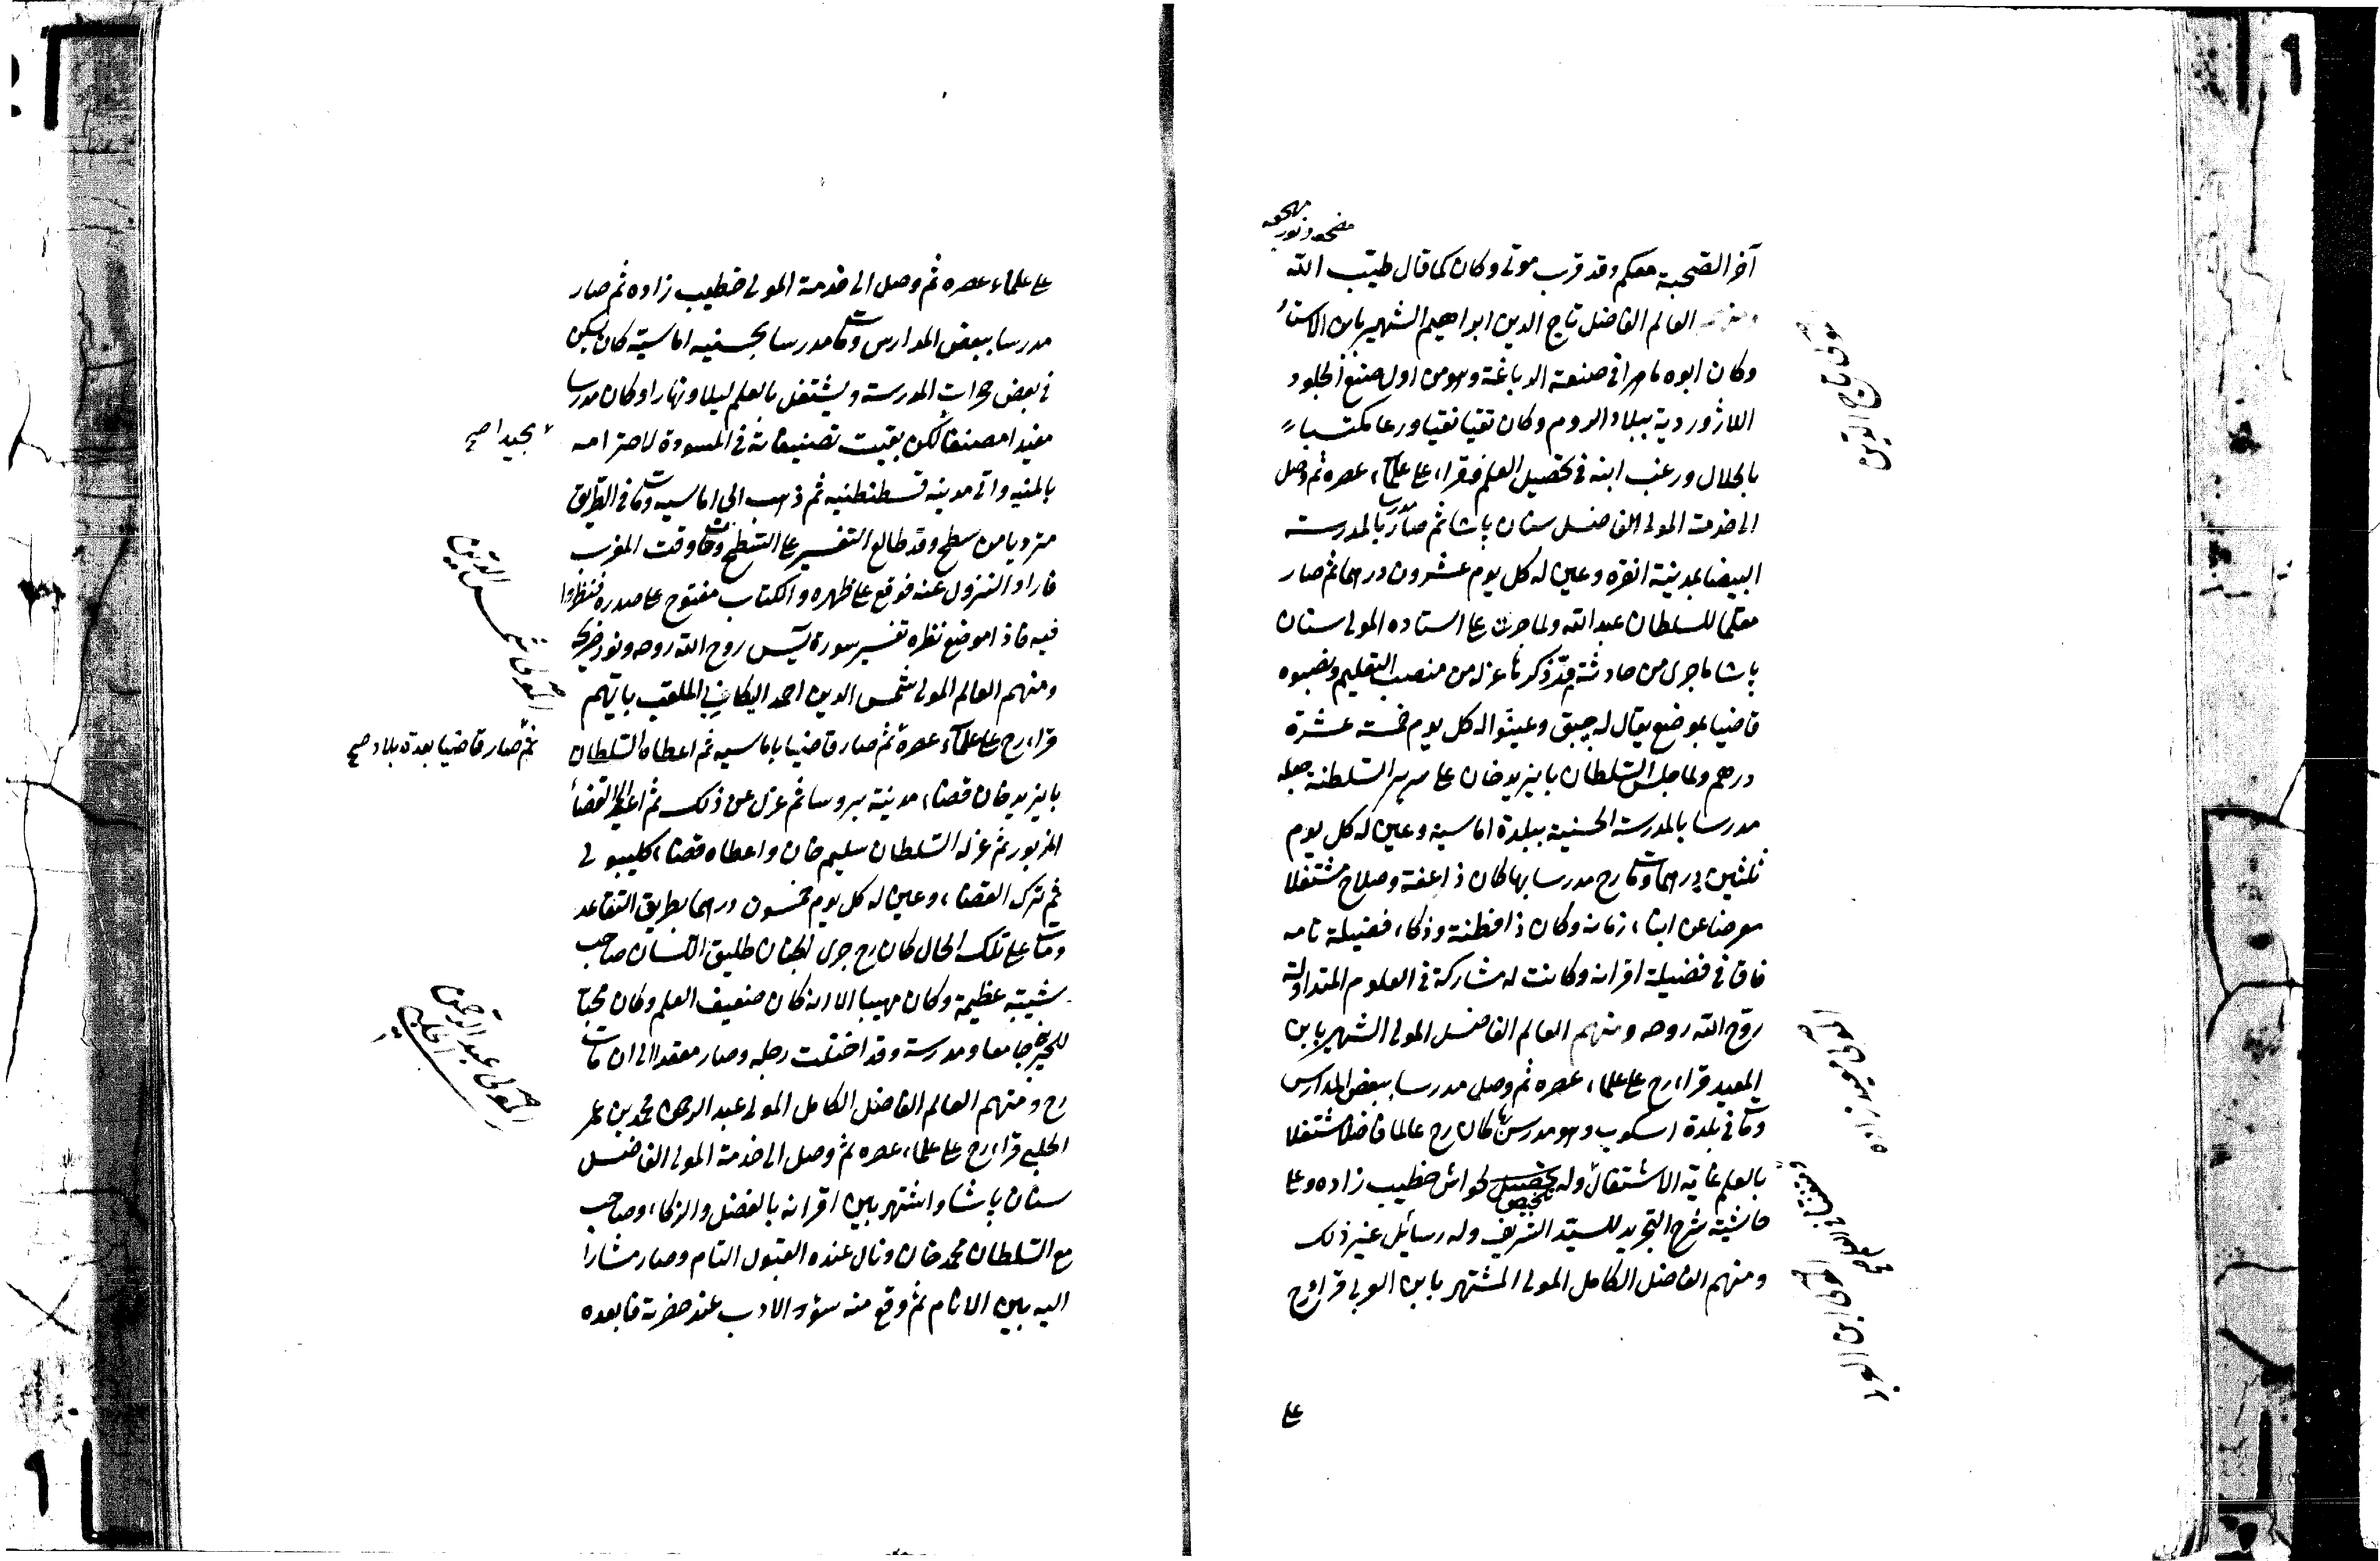 مضجعه ونور مهجعه
آخر الصحبة معكم وقد قرب موتى وكان كما قال طيّب الله
ومنهم العالم الفاضل تاج الدين ابراهيم الشهير بابن الاستاد
وكان ابوه ماهرا في صنعة الدباغة وهو من اول صنع الجلود
اللاژوردية ببلاد الروم وكان تقيا نقيا ورعا مكتسبا
بالحلال ورغب ابنه في تحصيل العلم فقراء على علماء عصره ثم وصل
الى خدمة المولى الفاضل سنان پاشا ثم صار مدرسا بالمدرسة
البيضا بمدينة انقره وعين له كل يوم عشرون درهما ثم صار
معلما للسلطان عبد الله ولما جرى على استاده المولى سنان
پاشا ما جرى من حادثة قد ذكرناها عزله من منصب التعليم ونصبوه
قاضيا بموضع يقال له چبق وعينوا له كل يوم خمسة عشرة
درهم ولما جلس السلطان بايزيد خان على سرير السلطنة جعله
مدرسا بالمدرسة الحسنية ببلدة اماسيه وعين له كل يوم
ثلثين درهما ومات رح مدرسا بها كان ذا عفة وصلاح مشتغلا
معرضا عن ابناء زمانه وكان ذا فطنة وذكاء فضيلة تامه
فاق في فضيلة اقرانه وكانت له مشاركة في العلوم المتداولة
روّح الله روحه ومنهم العالم الفاضل المولى الشهير بابن
المعيد قراء رح على علماء عصره ثم وصل مدرسا ببعض المدارس
ومات في بلدة اسكوب وهو مدرس بها كان رح عالما فاضلا مشتغلا
بالعلم غاية الاشتغال وله تلخيص لحواشى خطيب زاده وعلى
حاشية شرح التجريد للسيّد الشريف وله رسائل غير ذلك
ومنهم الفاضل الكامل المولى المشتهر بابن العربى قراء رح
على
المولى تاج الدين
على علماء عصره ثم وصل الى خدمة المولى خطيب زاده ثم صار
مدرسا ببعض المدارس ومات مدرسا بحسنيه اماسيّة كان يسكن
في بعض حجرات المدرسة ويشتغل بالعلم ليلا ونهارا وكان مدرسا
مفيدا مصنفا لكن بقيت تصنيفاته في المسودة لاخترامه
بالمنيه واتى مدينه قسطنطنيه ثم ذهب الى اماسيه ومات في الطريق
مترديا من سطح وقد طالع التفسير على السطح وجاء وقت المغرب
فاراد النزول عنه فوقع على ظهره والكتاب مفتوح على صدره فنظروا
فيه فاذا موضع نظره تفسير سورة يٓس روح الله روحه ونور ضريحه
ومنهم العالم المولى شمس الدين احمد اليكانى الملقب باتهم
قراء رح على علماء عصره ثم صار قاضيا باماسيه ثم اعطاه السلطان
بايزيد خان قضاء مدينة بروسا ثم عزل عن ذلك ثم اعيد الى القضاء
المزبور ثم عزله السلطان سليم خان واعطاه قضاء كليبولى
ثم ترك القضاء وعين له كل يوم خمسون درهما بطريق التقاعد
ومات على تلك الحال كان رح جرى الجنان طليق اللسان صاحب
شيبة عظيمة وكان مهيبا الا انه كان ضعيف العلم وكان محبا
للخير بنى جامعا ومدرسة وقد اختلت رجله وصار مقعدا الى ان مات
رح ومنهم العالم الفاضل الكامل المولى عبد الرحمن محمد بن عمر
الحلبى قراء رح على علماء عصره ثم وصل الى خدمة المولى الفاضل
سنان پاشا واشتهر بين اقرانه بالفضل والذكاء وصاحب
مع السلطان محمد خان ونال عنده القبول التام وصار مشارا
اليه بين الانام ثم وقع منه سوء الادب عند حضرته فابعده
مجيدا صح
المولى شمس الدين
ثم صار قاضيا بعدة بلاد صح
المولى عبد الرحمن الحلبى